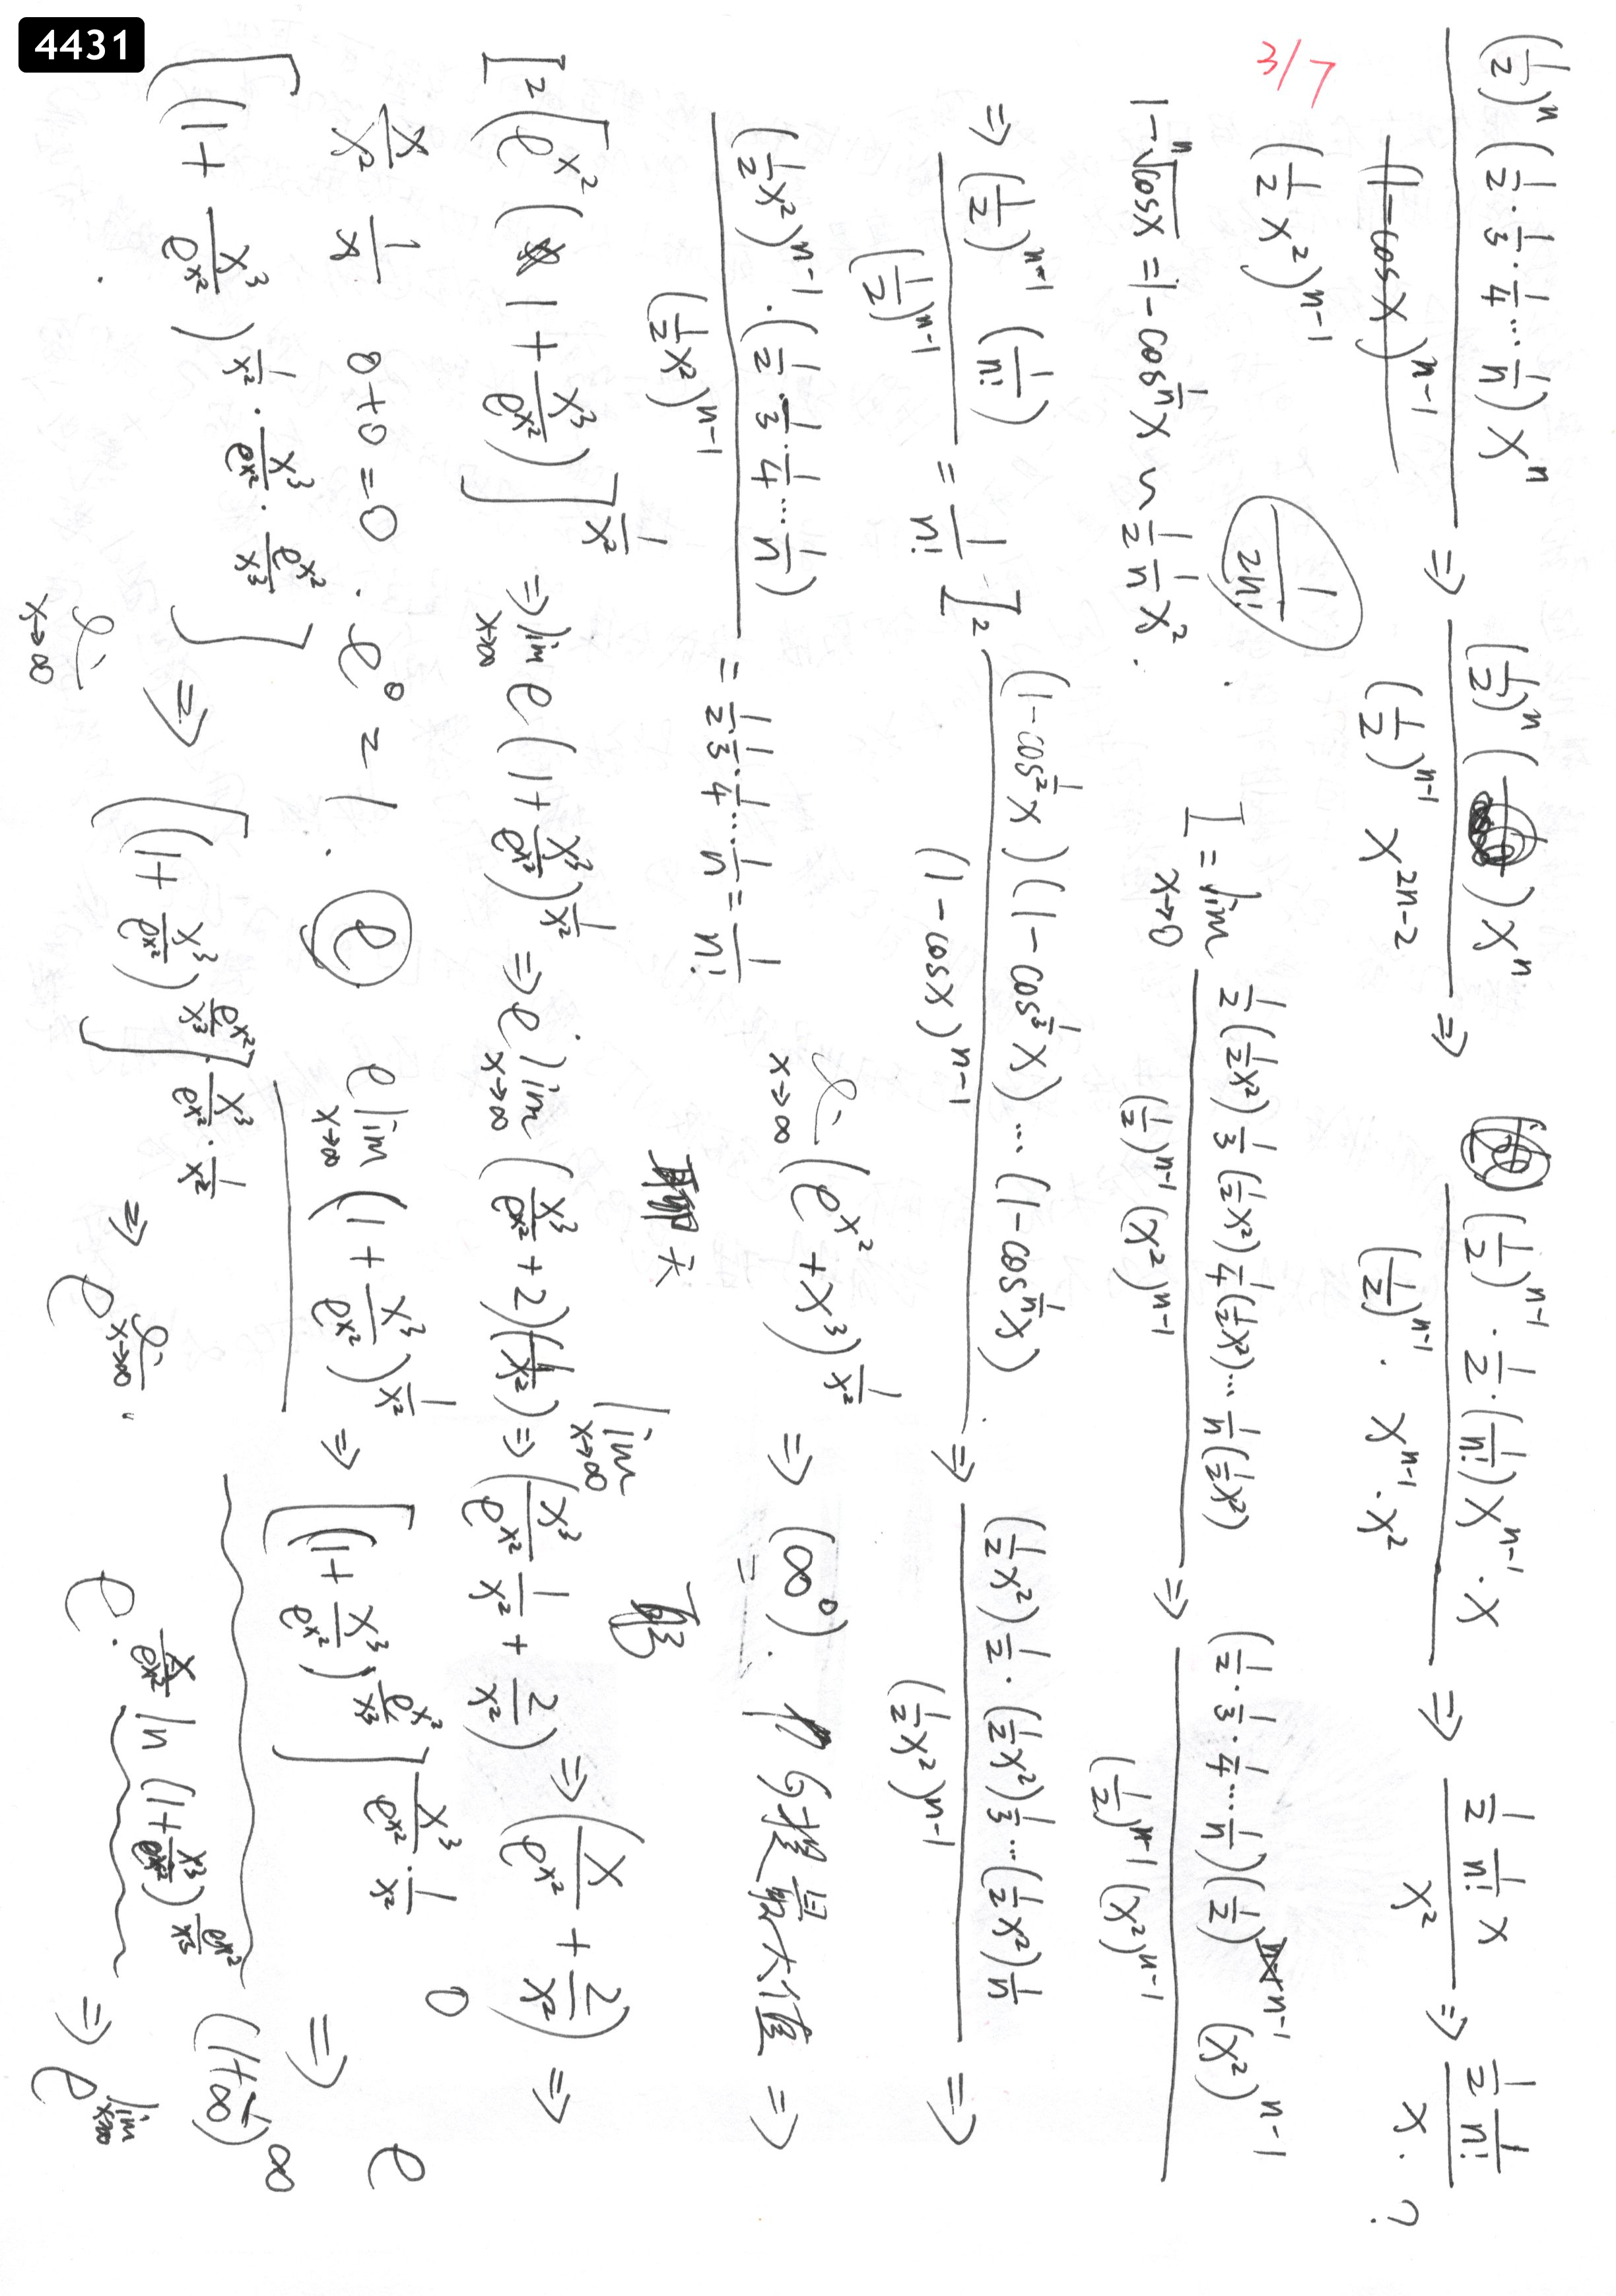 4431
3/7
(1/2)^n (1/2 · 1/3 · 1/4 ... 1/n) x^n / (1/2 x²)^{n-1} ⇒ (1/2)^n ( ) x^n / (1/2)^{n-1} x^{2n-2} ⇒ (1/2)^{n-1} · 1/2 · (1/n!) x^{n-1} · x / (1/2)^{n-1} · x^{n-1} · x² ⇒ 1/2 1/n! x / x² ⇒ 1/2 1/n! / x . ?
(1-cosx)^{n-1}
1/2n!
I = lim x→0 1/2(1/2x²) 1/3(1/2x²) 1/4(1/2x²) ... 1/n(1/2x²) / (1/2)^{n-1} (x²)^{n-1} ⇒ (1/2 · 1/3 · 1/4 ... 1/n)(1/2)^{n-1} (x²)^{n-1} / (1/2)^{n-1} (x²)^{n-1}
1-ⁿ√cosx = 1-cos^{1/n}x ~ 1/2 1/n x² .
⇒ (1/2)^{n-1} (1/n!) / (1/2)^{n-1} = 1/n!
I₂ (1-cos^{1/2}x)(1-cos^{1/3}x) ... (1-cos^{1/n}x) / (1-cosx)^{n-1} ⇒ (1/2x²)1/2 · (1/2x²)1/3 ... (1/2x²)1/n / (1/2x²)^{n-1} ⇒
(1/2x²)^{n-1} · (1/2 · 1/3 · 1/4 ... 1/n) / (1/2x²)^{n-1} = 1/2 · 1/3 · 1/4 ... 1/n = 1/n!
x→∞ (e^{x²}+x³)^{1/x²} ⇒ (∞⁰) . 提最大值 ⇒
[e^{x²}(1+x³/e^{x²})]^{1/x²} ⇒ lim x→∞ e(1+x³/e^{x²})^{1/x²} ⇒ e lim x→∞ (x³/e^{x²}+2)(1/x²) ⇒ lim x→∞ (x³/e^{x²} 1/x² + 2/x²) ⇒ (x/e^{x²} + 2/x²) ⇒
x/x² 1/x 0+0=0 . e⁰=1 . e
e lim x→∞ (1+x³/e^{x²})^{1/x²} ⇒ [(1+x³/e^{x²})^{e^{x²}/x³}]^{x³/e^{x²} · 1/x²} 0 ⇒ e
[(1+x³/e^{x²})^{1/x² · x³/e^{x²} · e^{x²}/x³}] ⇒ [(1+x³/e^{x²})^{e^{x²}/x³}]^{x³/e^{x²} · 1/x²} ⇒ e^{x→∞}
(1+1/∞)^∞
e · x/e^{x²} ln(1+x³/e^{x²})^{e^{x²}/x³} ⇒ e^{lim x→∞}